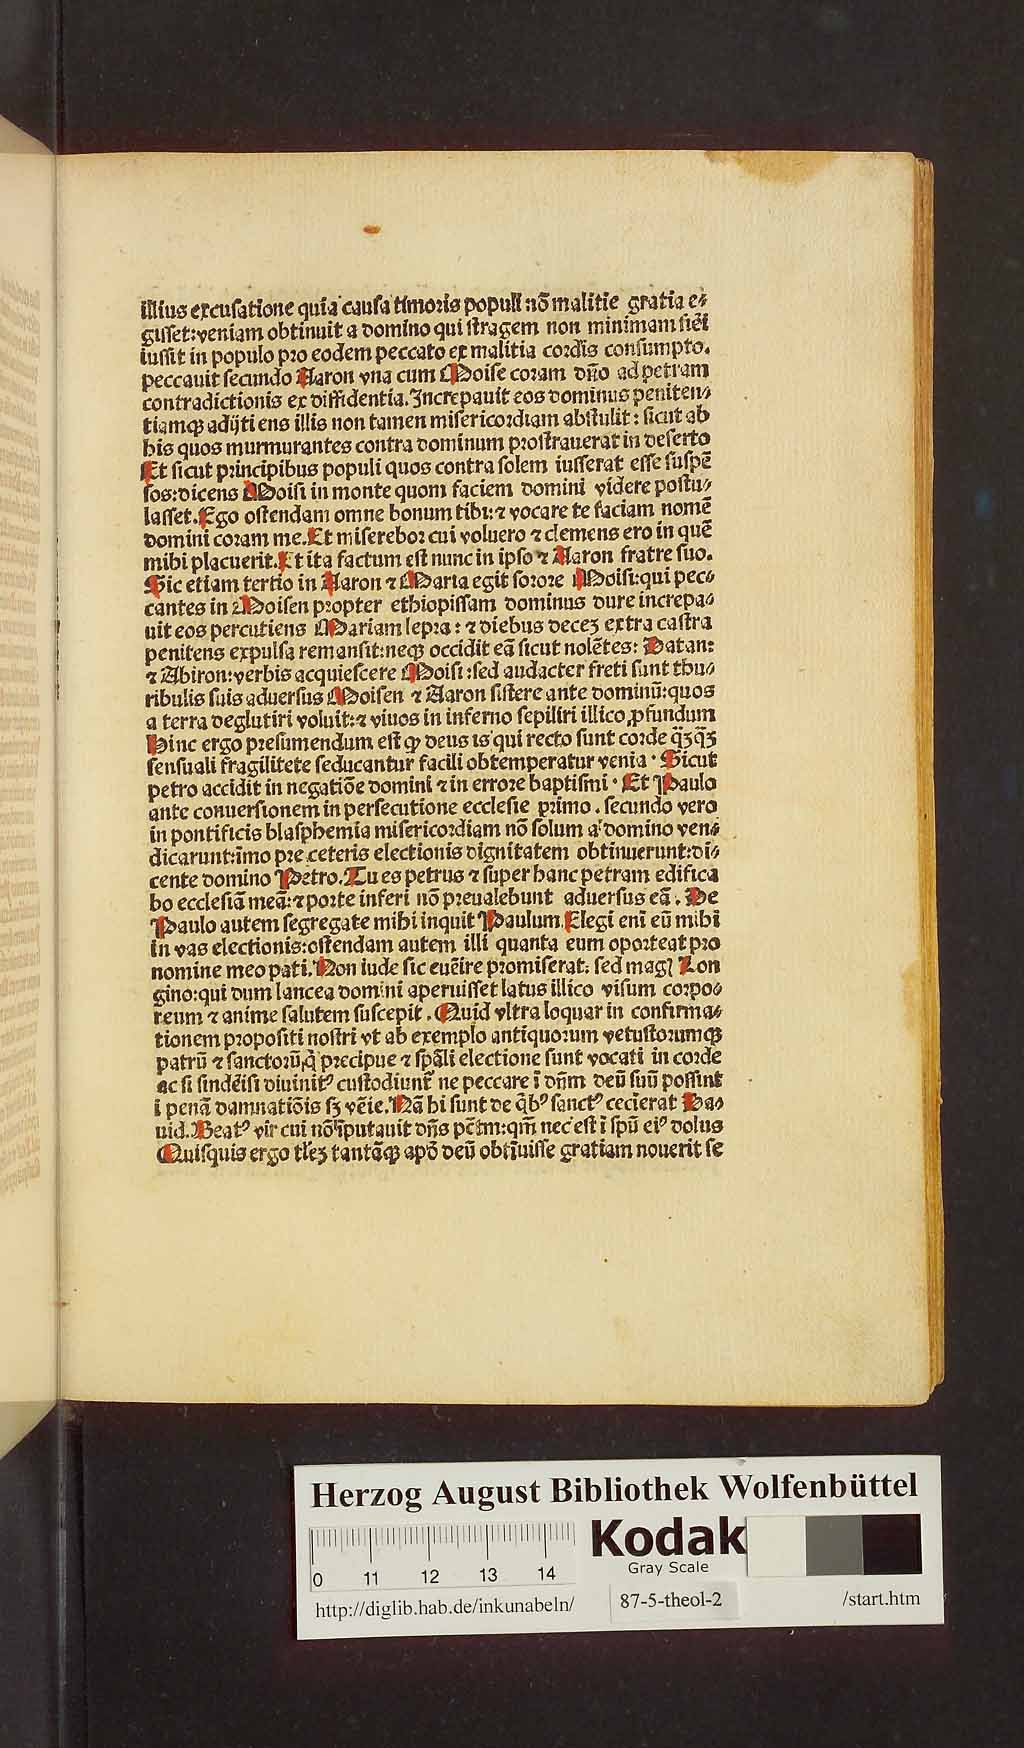 illius excusatione quia causa timoris populi nō malitie gratia e⸗
gisset:veniam obtinuit a domino qui stragem non minimam fiēi
iussit in populo pro eodem peccato ex malitia cordis consumpto.
peccauit secundo Aaron vna cum Moise coram dn̄o ad petram
contradictionis ex diffidentia. Increpauit eos dominus peniten⸗
tiamqꝫ adijtiens illis non tamen misericordiam abstulit: sicut ab
his quos murmurantes contra dominum prostrauerat in deserto
Et sicut principibus populi quos contra solem iusserat esse suspē
sos:dicens Moisi in monte quom faciem domini videre postu⸗
lasset. Ego ostendam omne bonum tibi:⁊ vocare te faciam nomē
domini coram me. Et miserebor cui voluero ⁊ clemens ero in quē
mihi placuerit. Et ita factum est nunc in ipso ⁊ Aaron fratre suo.
Sic etiam tertio in Aaron ⁊ Maria egit sorore Moisi:qui pec⸗
cantes in Moisen propter ethiopissam dominus dure increpa⸗
uit eos percutiens Mariam lepra: ⁊ diebus decez extra castra
penitens expulsa remansit:neqꝫ occidit eā sicut nolētes: Datan:
⁊ Abiron:verbis acquiescere Moisi:sed audacter freti sunt thu⸗
ribulis suis aduersus Moisen ⁊ Aaron sistere ante dominū:quos
a terra deglutiri voluit:⁊ viuos in inferno sepiliri illico ꝓfundum
Hinc ergo presumendum est ꝙ deus is qui recto sunt corde q̄ꝫq̄ꝫ
sensuali fragilitete seducantur facili obtemperatur venia. Sicut
petro accidit in negatiōe domini ⁊ in errore baptismi. Et Paulo
ante conuersionem in persecutione ecclesie primo. secundo vero
in pontificis blasphemia misericordiam nō solum a domino ven⸗
dicarunt:īmo pre ceteris electionis dignitatem obtinuerunt:di⸗
cente domino Petro. Tu es petrus ⁊ super hanc petram edifica
bo ecclesiā meā:⁊ porte inferi nō preualebunt aduersus eā. De
Paulo autem segregate mihi inquit Paulum. Elegi enī eū mihi
in vas electionis:ostendam autem illi quanta eum oporteat pro
nomine meo pati. Non iude sic euēire promiserat: sed magꝭ Lon
gino:qui dum lancea domini aperuisset latus illico visum corpo⸗
reum ⁊ anime salutem suscepit. Quid vltra loquar in confirma⸗
tionem propositi nostri vt ab exemplo antiquorum vetustorumqꝫ
patrū ⁊ sanctorū,q̄ precipue ⁊ sp̄ali electione sunt vocati in corde
ac si sindēisi diuinitꝰ custodiunt᷑ ne peccare ī dn̄m deū suū possint
ī penā damnatiōis sꝫ vēie. Nā hi sunt de q̄bꝰ sanctꝰ cecierat Da⸗
uid. Beatꝰ vir cui nō īputauit dn̄s pc̄tm:qm̄ nec est ī spū eiꝰ dolus
Quisquis ergo tl̄eꝫ tantāqꝫ apō deū obtīuisse gratiam nouerit se
Herzog August Bibliothek Wolfenbüttel
Kodak
Gray Scale
0 11 12 13 14
http://diglib.hab.de/inkunabeln/ 87-5-theol-2 /start.htm